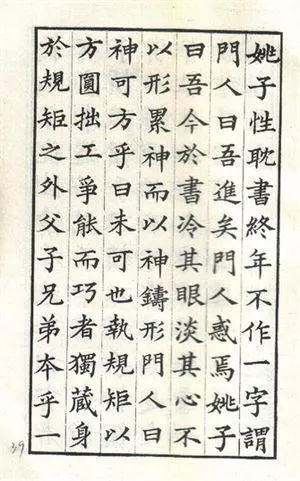 姚子性耽書終年不作一字謂
門人曰吾進矣門人惑焉姚子
曰吾今於書冷其眼淡其心不
以形累神而以神鑄形門人曰
神可方乎曰未可也執規矩以
方圓拙工爭能而巧者獨蔵身
於規矩之外父子兄弟本乎一
39